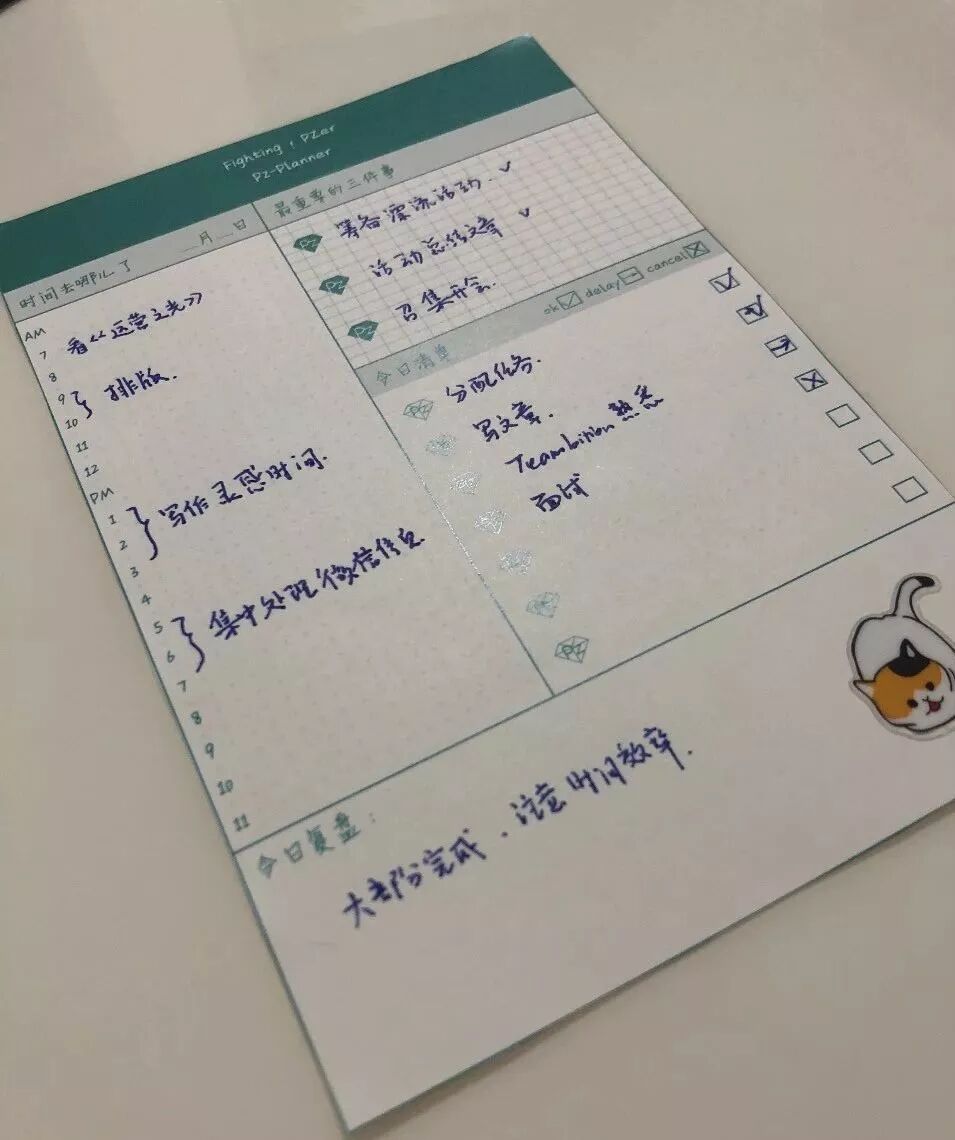 Fighting , PZer
PZ-Planner
时间去哪儿了 __月__日
AM
7 看《运营之光》
8
9 } 排版.
10
11
12
PM
1 } 写作灵感时间.
2
3
4
5 } 集中处理微信信息
6
7
8
9
10
11
最重要的三件事
PZ 筹备漂流活动. ✓
PZ 活动总结文章 ✓
PZ 召集开会.
今日清单 ok ☑ delay ⊟ cancel ☒
PZ 分配任务. ☑
PZ 写文章. ☑
PZ Teambition 熟悉
PZ 面试 ☒
PZ
PZ
PZ
今日复盘：
大部分完成、注意时间效率.